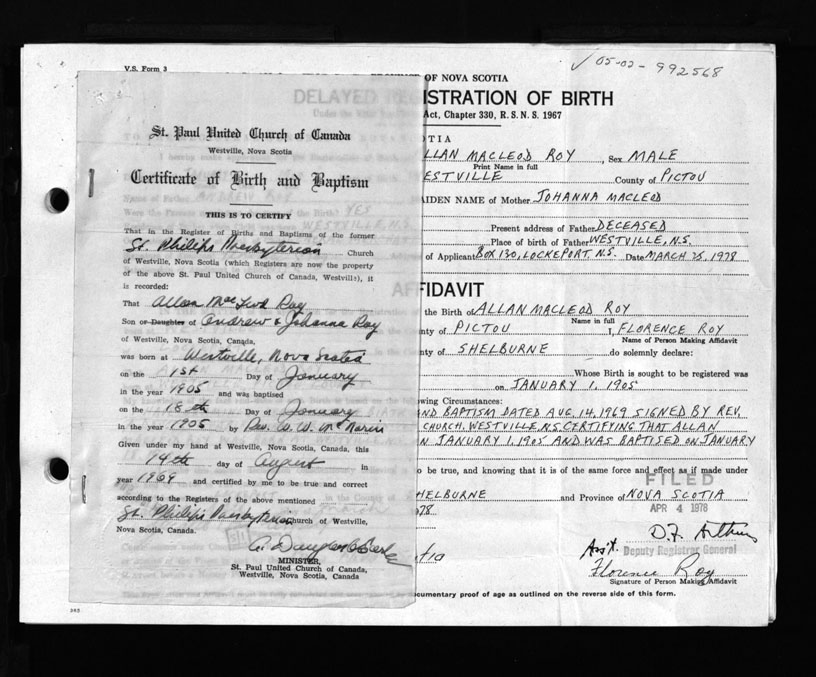 V.S. Form 3
✓ 05-02-992568
PROVINCE OF NOVA SCOTIA
DELAYED REGISTRATION OF BIRTH
Act, Chapter 330, R.S.N.S. 1967
St. Paul United Church of Canada
Westville, Nova Scotia
Certificate of Birth and Baptism
THIS IS TO CERTIFY
That in the Register of Births and Baptisms of the former
St. Philips Presbyterian Church
of Westville, Nova Scotia (which Registers are now the property
of the above St. Paul United Church of Canada, Westville), it
is recorded:
That Allan Roy
Son or Daughter of Andrew & Johanna Roy
of Westville, Nova Scotia, Canada,
was born at Westville, Nova Scotia
on the 1st Day of January
in the year 1905 and was baptised
on the 18th Day of January
in the year 1905 by Rev. W. W.
Given under my hand at Westville, Nova Scotia, this
14th day of August in
year 1969 and certified by me to be true and correct
according to the Registers of the above mentioned
St. Philips Presbyterian Church of Westville,
Nova Scotia, Canada.
MINISTER,
St. Paul United Church of Canada,
Westville, Nova Scotia, Canada
OTIA
LLAN MACLEOD ROY, Sex MALE
Print Name in full
ESTVILLE County of PICTOU
AIDEN NAME of Mother JOHANNA MACLEOD
Present address of Father DECEASED
Place of birth of Father WESTVILLE, N.S.
of Applicant BOX 130, LOCKEPORT, N.S. Date MARCH 25, 1978
AFFIDAVIT
the Birth of ALLAN MACLEOD ROY
Name in full
nty of PICTOU I, FLORENCE ROY
Name of Person Making Affidavit
nty of SHELBURNE do solemnly declare:
Whose Birth is sought to be registered was
on JANUARY 1, 1905
wing Circumstances:
ND BAPTISM DATED AUG. 14, 1969 SIGNED BY REV.
CHURCH, WESTVILLE, N.S. CERTIFYING THAT ALLAN
N JANUARY 1, 1905 AND WAS BAPTISED ON JANUARY
o be true, and knowing that it is of the same force and effect as if made under
FILED
HELBURNE and Province of NOVA SCOTIA
978 APR 4 1978
Ass't. Deputy Registrar General
otia
Florence Roy
Signature of Person Making Affidavit
cumentary proof of age as outlined on the reverse side of this form.